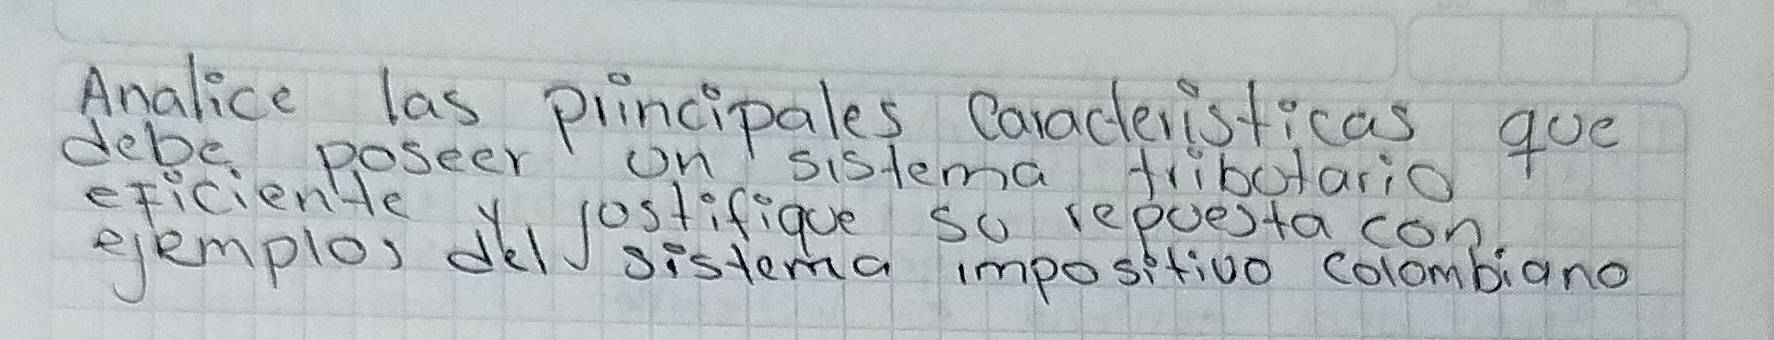 Analice las principales caracteristicas que
debe poseer un sistema tributario
eficiente y justifique su repuesta con
ejemplos del sistema impositivo colombiano